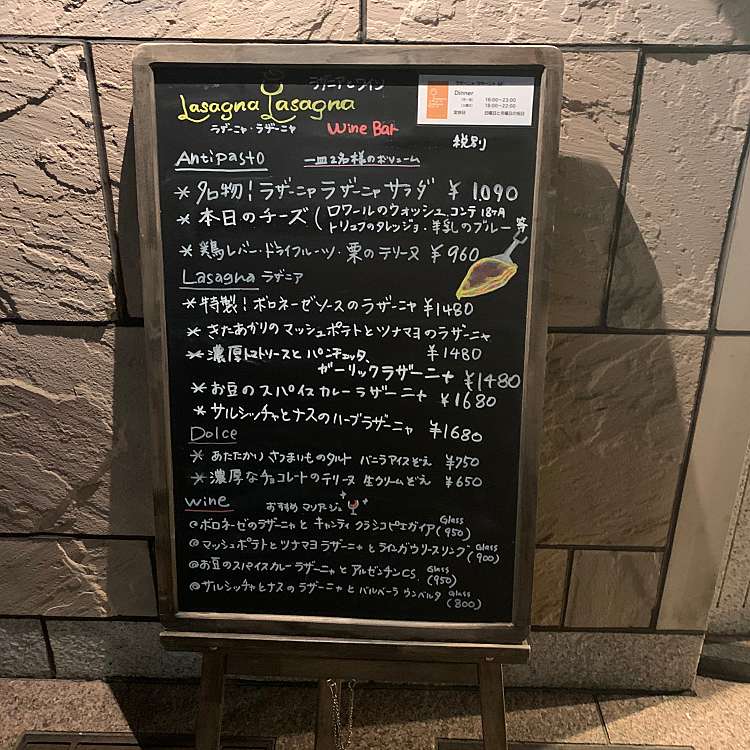 ラザニアとワイン
Lasagna Lasagna
ラザーニャ・ラザーニャ
Wine Bar
Dinner
18:00~23:00
18:00~22:00
定休日 日曜日と月曜日の祝日
税別
Antipasto 一皿2名様のボリューム
* 名物!ラザーニャラザーニャサラダ ¥1,090
* 本日のチーズ(ロワールのウォッシュ、コンテ18ヶ月
トリュフのタレッジョ・羊乳のブルー 等
* 鶏レバー・ドライフルーツ・栗のテリーヌ ¥960
Lasagna ラザニア
* 特製!ボロネーゼソースのラザーニャ ¥1480
* きたあかりのマッシュポテトとツナマヨのラザーニャ
¥1480
* 濃厚トマトソースとパンチェッタ、
ガーリックラザーニャ ¥1480
* お豆のスパイスカレーラザーニャ ¥1680
* サルシッチャとナスのハーブラザーニャ ¥1680
Dolce
* あたたかいさつまいものタルト バニラアイスぞえ ¥750
* 濃厚なチョコレートのテリーヌ 生クリームぞえ ¥650
Wine おすすめマリアージュ
@ボロネーゼのラザーニャと キャンティクラシコピエガイア Glass (950)
@マッシュポテトとツナマヨラザーニャとラインガウリースリング Glass (900)
@お豆のスパイスカレーラザーニャとアルゼンチンCS. Glass (950)
@サルシッチャとナスのラザーニャとバルベーラ ウンベルタ Glass (800)